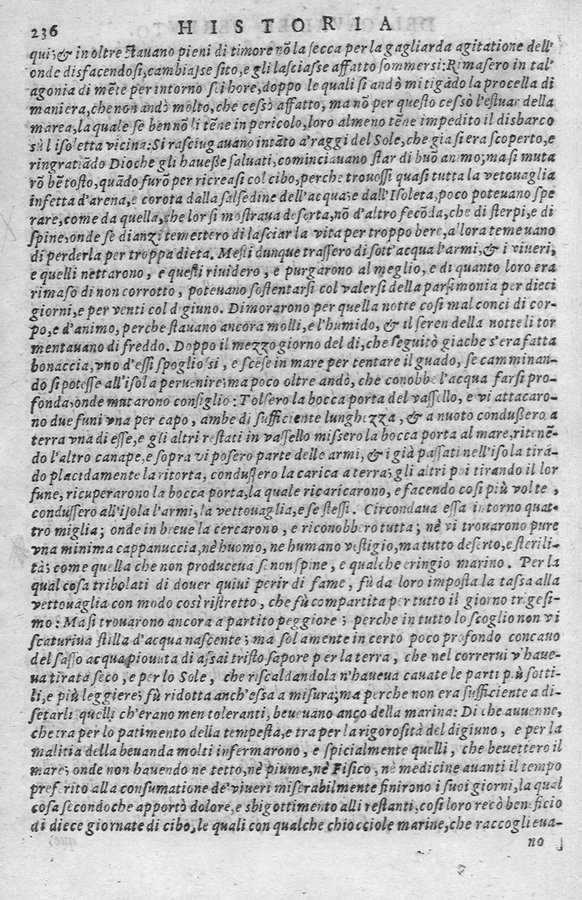 236 HISTORIA
qui; & in oltre stauano pieni di timore nõ la secca per la gagliarda agitatione dell'
onde disfacendosi, cambiasse sito, e gli lasciasse affatto sommersi: Rimasero in tal'
agonia di mẽte per intorno sei hore, doppo le quali si andò mitigãdo la procella di
maniera, che non andò molto, che cessò affatto, ma nõ per questo cessò l'estuar della
marea, la quale se ben nõ li tẽne in pericolo, loro almeno tẽne impedito il disbarco
sù l'isoletta vicina: Si rasciugauano intãto a'raggi del Sole, che già si era scoperto, e
ringratiãdo Dio che gli hauesse saluati, cominciauano star di buõ animo; ma si muta
rõ bẽ tosto, quãdo furõ per ricreasi col cibo, perche trouossi quasi tutta la vetouaglia
infetta d'arena, e corota dalla salsedine dell'acqua; e dall'Isoleta, poco poteuano spe
rare, come da quella, che lor si mostraua deserta, nõ d'altro fecõda, che di sterpi, e di
spine, onde se dianzi temettero di lasciar la vita per troppo bere, a'lora temeuano
di perderla per troppa dieta. Mesti dunque trassero di sott'acqua l'armi, & i viueri,
e quelli nettarono, e questi riuidero, e purgarono al meglio, e di quanto loro era
rimaso di non corrotto, poteuano sostentarsi col valersi della parsimonia per dieci
giorni, e per venti col digiuno. Dimorarono per quella notte così mal conci di cor-
po, e d'animo, perche stauano ancora molli, e l'humido, & il seren della notte li tor
mentauano di freddo. Doppo il mezzo giorno del dì, che seguitò giache s'era fatta
bonaccia, vno d'essi spogliossi, e scese in mare per tentare il guado, se camminan-
do si potesse all'isola peruenire; ma poco oltre andò, che conobbe l'acqua farsi pro-
fonda; onde mutarono consiglio: Tolsero la bocca porta del vassello, e vi attacaro-
no due funi vna per capo, ambe di sufficiente lunghezza, & a nuoto condussero a
terra vna di esse, e gli altri restati in vassello missero la bocca porta al mare, ritenẽ-
do l'altro canape, e sopra vi posero parte delle armi, & i già passati nell'isola tirã-
do placidamente la ritorta, condussero la carica a terra; gli altri poi tirando il lor
fune, ricuperarono la bocca porta, la quale ricaricarono, e facendo così più volte,
condussero all'isola l'armi, la vettouaglia, e se stessi. Circondaua essa intorno quat-
tro miglia; onde in breue la cercarono, e riconobber tutta; nè vi trouarono pure
vna minima cappanuccia, nè huomo, ne humano vestigio, ma tutto deserto, e sterili-
tà; come quella che non produceua se non spine, e qualche eringio marino. Per la
qual cosa tribolati di douer quiui perir di fame, fù da loro imposta la tassa alla
vettouaglia con modo così ristretto, che fù compartita per tutto il giorno trigesi-
mo: Ma si trouarono ancora a partito peggiore; perche in tutto lo scoglio non vi
scaturiua stilla d'acqua nascente; ma solamente in certo poco profondo concauo
del sasso acqua piouuta di assai tristo sapore per la terra, che nel correrui v'haue-
ua tirata seco, e per lo Sole, che riscaldandola n'haueua cauate le parti più sotti-
li, e più leggiere; fù ridotta anch'essa a misura; ma perche non era sufficiente a di-
setarli quelli ch'erano men toleranti, beueuano anco della marina: Di che auuenne,
che tra per lo patimento della tempesta, e tra per la rigorosità del digiuno, e per la
malitia della beuanda molti infermarono, e spicialmente quelli, che beuettero il
mare; onde non hauendo ne tetto, nè piume, nè Fisico, nè medicine auanti il tempo
preferito alla consumatione de'viueri miserabilmente finirono i suoi giorni, la qual
cosa secondoche apportò dolore, e sbigottimento alli restanti, così loro recò beneficio
di diece giornate di cibo, le quali con qualche chiocciole marine, che raccoglieua-
no